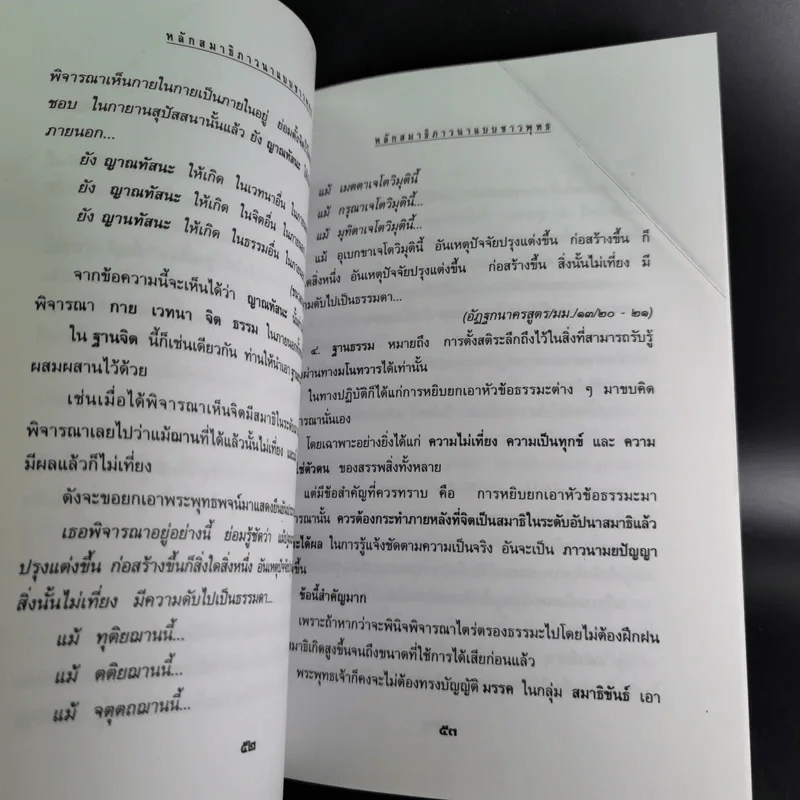 หลักสมาธิภาวนาแบบชาวพุทธ
พิจารณาเห็นกายในกายเป็นภายในอยู่ ย่อมตั้ง
ชอบ ในกายานุปัสสนานั้นแล้ว ยัง ญาณทัสนะ
ภายนอก...
ยัง ญาณทัสนะ ให้เกิด ในเวทนาอื่น
ยัง ญาณทัสนะ ให้เกิด ในจิตอื่น
ยัง ญานทัสนะ ให้เกิด ในธรรมอื่น
จากข้อความนี้จะเห็นได้ว่า ญาณทัสนะ
พิจารณา กาย เวทนา จิต ธรรม ในภายนอก
ใน ฐานจิต นี้ก็เช่นเดียวกัน ท่านให้นำเอา
ผสมผสานไว้ด้วย
เช่นเมื่อได้พิจารณาเห็นจิตมีสมาธิใน
พิจารณาเลยไปว่าแม้ฌานที่ได้แล้วนั้นไม่เที่ยง
มีผลแล้วก็ไม่เที่ยง
ดังจะขอยกเอาพระพุทธพจน์มาแสดง
เธอพิจารณาอยู่อย่างนี้ ย่อมรู้ชัดว่า แม้
ปรุงแต่งขึ้น ก่อสร้างขึ้นก็สิ่งใดสิ่งหนึ่ง
สิ่งนั้นไม่เที่ยง มีความดับไปเป็นธรรมดา...
แม้ ทุติยฌานนี้...
แม้ ตติยฌานนี้...
แม้ จตุตถฌานนี้...
๕๒
หลักสมาธิภาวนาแบบชาวพุทธ
แม้ เมตตาเจโตวิมุตินี้
แม้ กรุณาเจโตวิมุตินี้...
แม้ มุทิตาเจโตวิมุตินี้...
แม้ อุเบกขาเจโตวิมุตินี้ อันเหตุปัจจัยปรุงแต่งขึ้น ก่อสร้างขึ้น ก็
สิ่งหนึ่ง อันเหตุปัจจัยปรุงแต่งขึ้น ก่อสร้างขึ้น สิ่งนั้นไม่เที่ยง มี
ดับไปเป็นธรรมดา...
(อัฏฐกนาครสูตร/มม./๑๓/๒๐ - ๒๑)
๔. ฐานธรรม หมายถึง การตั้งสติระลึกถึงไว้ในสิ่งที่สามารถรับรู้
ผ่านทางมโนทวารได้เท่านั้น
ในทางปฏิบัติก็ได้แก่การหยิบยกเอาหัวข้อธรรมะต่าง ๆ มาขบคิด
นั่นเอง
โดยเฉพาะอย่างยิ่งได้แก่ ความไม่เที่ยง ความเป็นทุกข์ และ ความ
ตัวตน ของสรรพสิ่งทั้งหลาย
แต่มีข้อสำคัญที่ควรทราบ คือ การหยิบยกเอาหัวข้อธรรมะมา
นั้น ควรต้องกระทำภายหลังที่จิตเป็นสมาธิในระดับอัปนาสมาธิแล้ว
ได้ผล ในการรู้แจ้งชัดตามความเป็นจริง อันจะเป็น ภาวนามยปัญญา
ขึ้น
ข้อนี้สำคัญมาก
เพราะถ้าหากว่าจะพินิจพิจารณาไตร่ตรองธรรมะไปโดยไม่ต้องฝึกฝน
สมาธิเกิดสูงขึ้นจนถึงขนาดที่ใช้การได้เสียก่อนแล้ว
พระพุทธเจ้าก็คงจะไม่ต้องทรงบัญญัติ มรรค ในกลุ่ม สมาธิขันธ์ เอา
๕๓